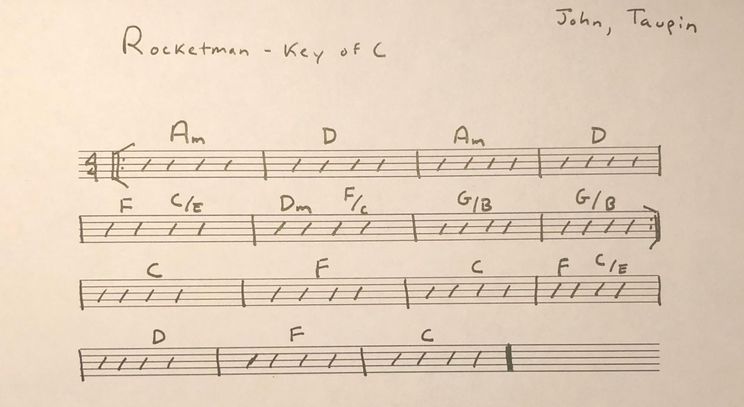 John, Taupin
Rocketman - Key of C
Am D Am D
4/4
F C/E Dm F/C G/B G/B
C F C F C/E
D F C